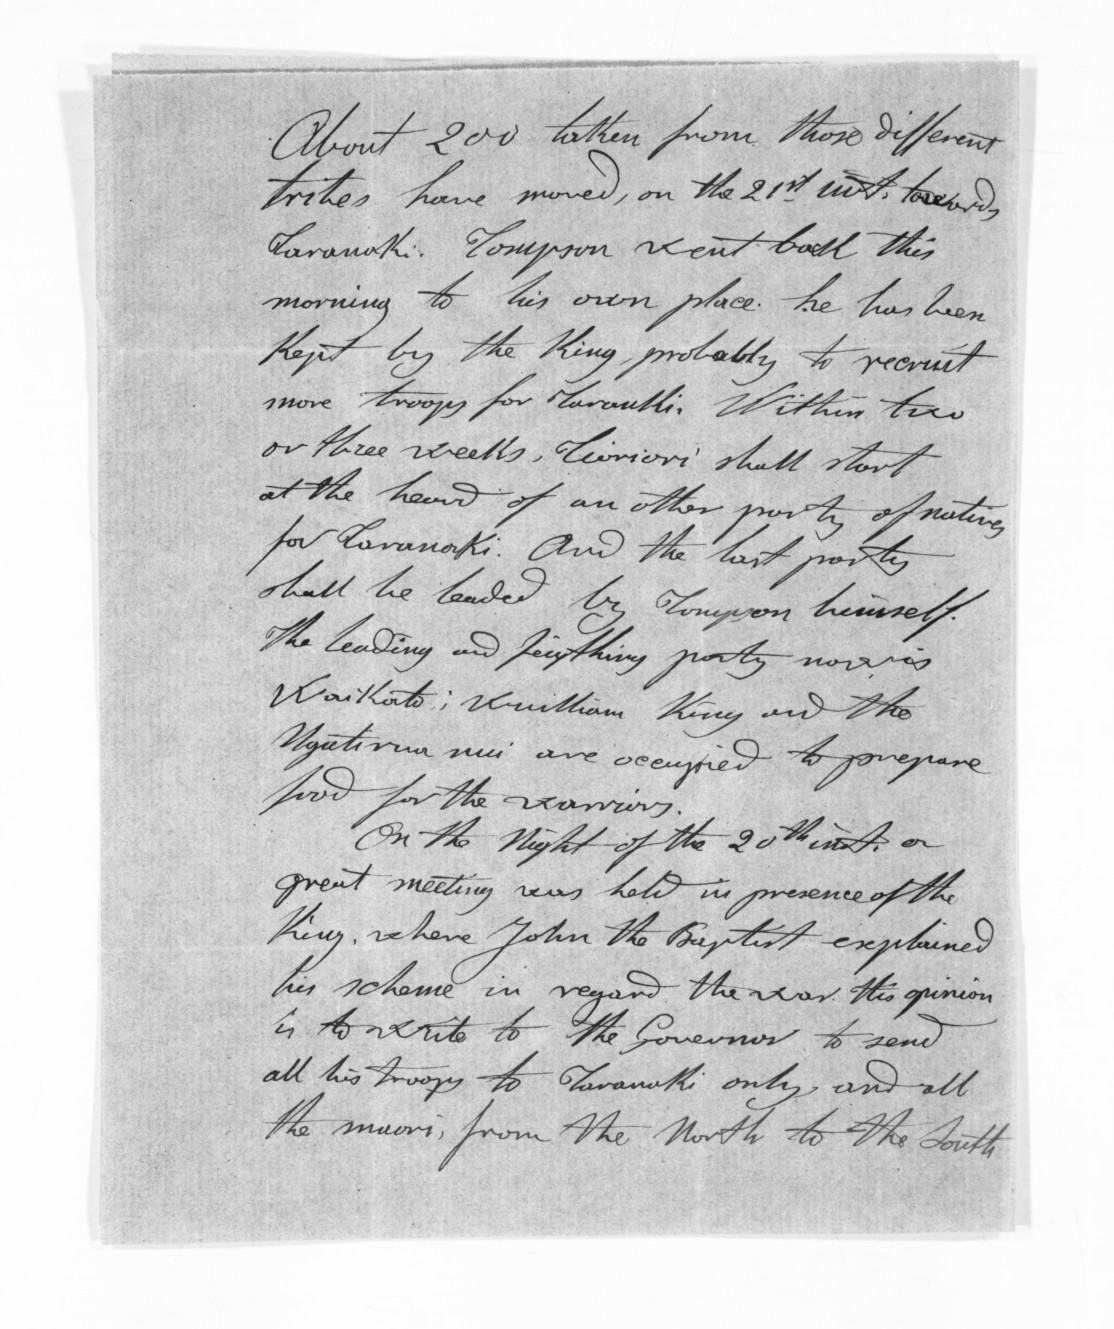 About 200 taken from those different
tribes have moved, on the 21st inst. towards
Taranaki. Tompson went back this
morning to his own place. he has been
Kept by the King, probably to recruit
more troops for Taranaki. Within two
or three weeks, Tioriori shall start
at the heard of an other party of natives
for Taranaki. And the last party
shall be leaded by Tompson himself.
The leading and feigthing party now is
Waikato; William King and the
Ngatirua nui are occupied to prepare
food for the warriors.
On the Night of the 20th inst. a
great meeting was held in presence of the
King. where John the Baptist explained
his scheme in regard the war. His opinion
is to write to the Governor to send
all his troops to Taranaki only, and all
the maori, from the North to the South